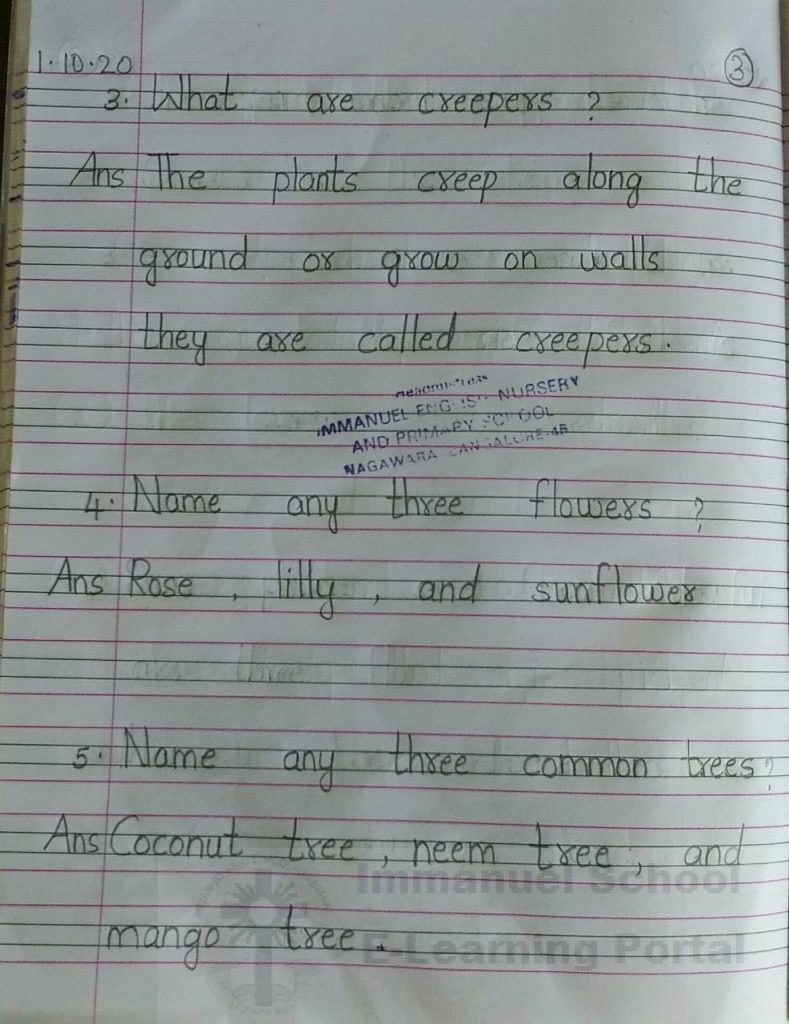 1.10.20
3
3. What are creepers ?
Ans The plants creep along the
ground or grow on walls
they are called creepers.
NURSERY
AND PRIMARY
NAGAWARA
4. Name any three flowers ?
Ans Rose , lilly , and sunflower
three
5. Name any three common trees?
Ans Coconut tree , neem tree , and
Immanuel School
mango tree .
E-Learning Portal